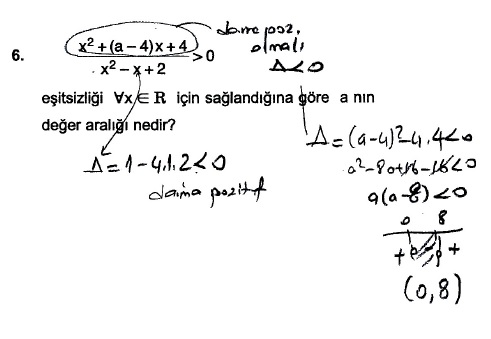 6. x² + (a – 4)x + 4 / x² – x + 2 > 0
daima poz.
olmalı
Δ<0
eşitsizliği ∀x ∈ R için sağlandığına göre a nın
değer aralığı nedir?
Δ = 1 – 4.1.2 < 0
daima pozitif
Δ = (a – 4)² – 4.4 < 0
a² – 8a + 16 – 16 < 0
a(a – 8) < 0
0 8
+ – +
(0,8)